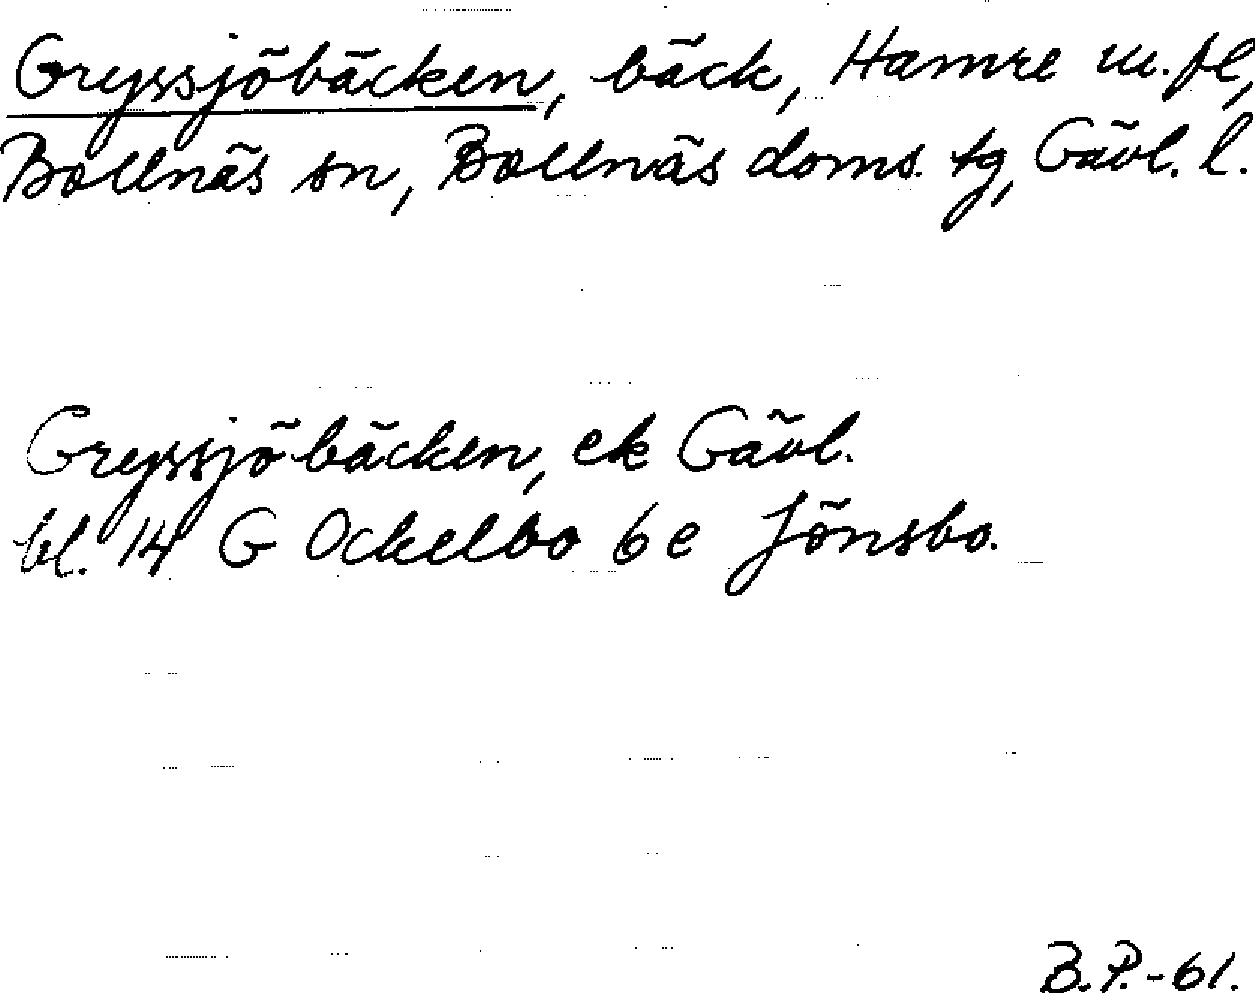 Gryssjöbäcken, bäck, Hamre m. fl,
Bollnäs sn, Bollnäs doms. tg, Gävl. l.
Gryssjöbäcken, ek Gävl.
bl. 14 G Ockelbo 6 e Jönsbo.
B.P.-61.